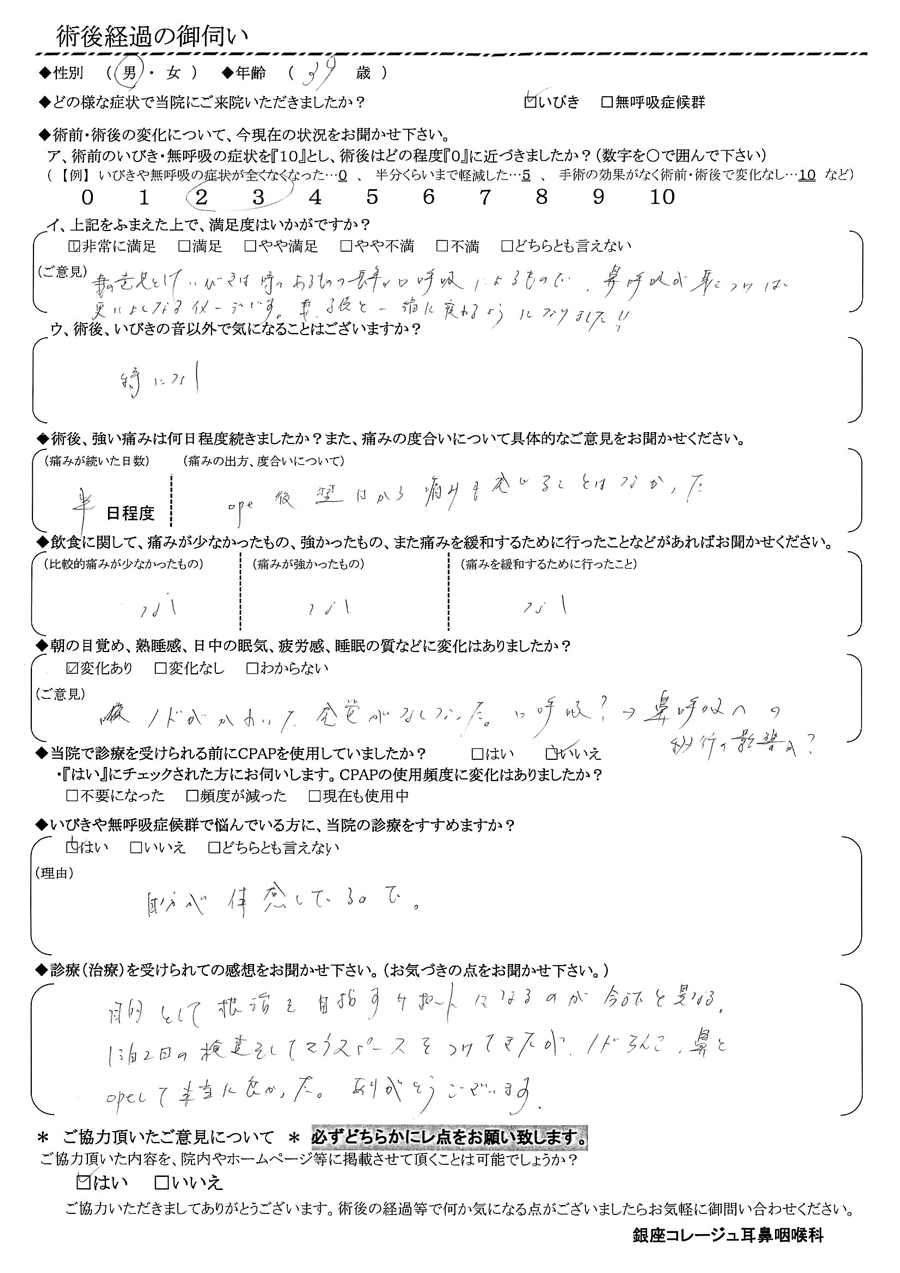 術後経過の御伺い
◆性別 (男・女) ◆年齢 (39 歳)
◆どの様な症状で当院にご来院いただきましたか? ☑いびき □無呼吸症候群
◆術前・術後の変化について、今現在の状況をお聞かせ下さい。
ア、術前のいびき・無呼吸の症状を『10』とし、術後はどの程度『0』に近づきましたか?(数字を○で囲んで下さい)
(【例】いびきや無呼吸の症状が全くなくなった…0 、 半分くらいまで軽減した…5 、 手術の効果がなく術前・術後で変化なし…10 など)
0 1 2 3 4 5 6 7 8 9 10
イ、上記をふまえた上で、満足度はいかがですか?
☑非常に満足 □満足 □やや満足 □やや不満 □不満 □どちらとも言えない
(ご意見) 妻の意見としていびきは時々あるものの長年の口呼吸によるもので、鼻呼吸が身につけば
更によくなるイメージです。妻、子供と一緒に寝れるようになりました!!
ウ、術後、いびきの音以外で気になることはございますか?
特になし
◆術後、強い痛みは何日程度続きましたか?また、痛みの度合いについて具体的なご意見をお聞かせください。
(痛みが続いた日数) (痛みの出方、度合いについて)
半 日程度 ope後 翌日から痛みを感じることはなかった
◆飲食に関して、痛みが少なかったもの、強かったもの、また痛みを緩和するために行ったことなどがあればお聞かせください。
(比較的痛みが少なかったもの) (痛みが強かったもの) (痛みを緩和するために行ったこと)
なし なし なし
◆朝の目覚め、熟睡感、日中の眠気、疲労感、睡眠の質などに変化はありましたか?
☑変化あり □変化なし □わからない
(ご意見) ノドがかわいた感覚がなくなった。口呼吸?→鼻呼吸への
移行の影響か?
◆当院で診療を受けられる前にCPAPを使用していましたか? □はい ☑いいえ
・『はい』にチェックされた方にお伺いします。CPAPの使用頻度に変化はありましたか?
□不要になった □頻度が減った □現在も使用中
◆いびきや無呼吸症候群で悩んでいる方に、当院の診療をすすめますか?
☑はい □いいえ □どちらとも言えない
(理由)
自分が体感しているので。
◆診療(治療)を受けられての感想をお聞かせ下さい。(お気づきの点をお聞かせ下さい。)
目的として根治を目指すサポートになるのが今までと異なる。
1泊2日の検査をしてマウスピースをつけてきたが、ノドちんこ、鼻と
opeして本当に良かった。ありがとうございます。
* ご協力頂いたご意見について * 必ずどちらかにレ点をお願い致します。
ご協力頂いた内容を、院内やホームページ等に掲載させて頂くことは可能でしょうか?
☑はい □いいえ
ご協力いただきましてありがとうございます。術後の経過等で何か気になる点がございましたらお気軽に御問い合わせください。
銀座コレージュ耳鼻咽喉科